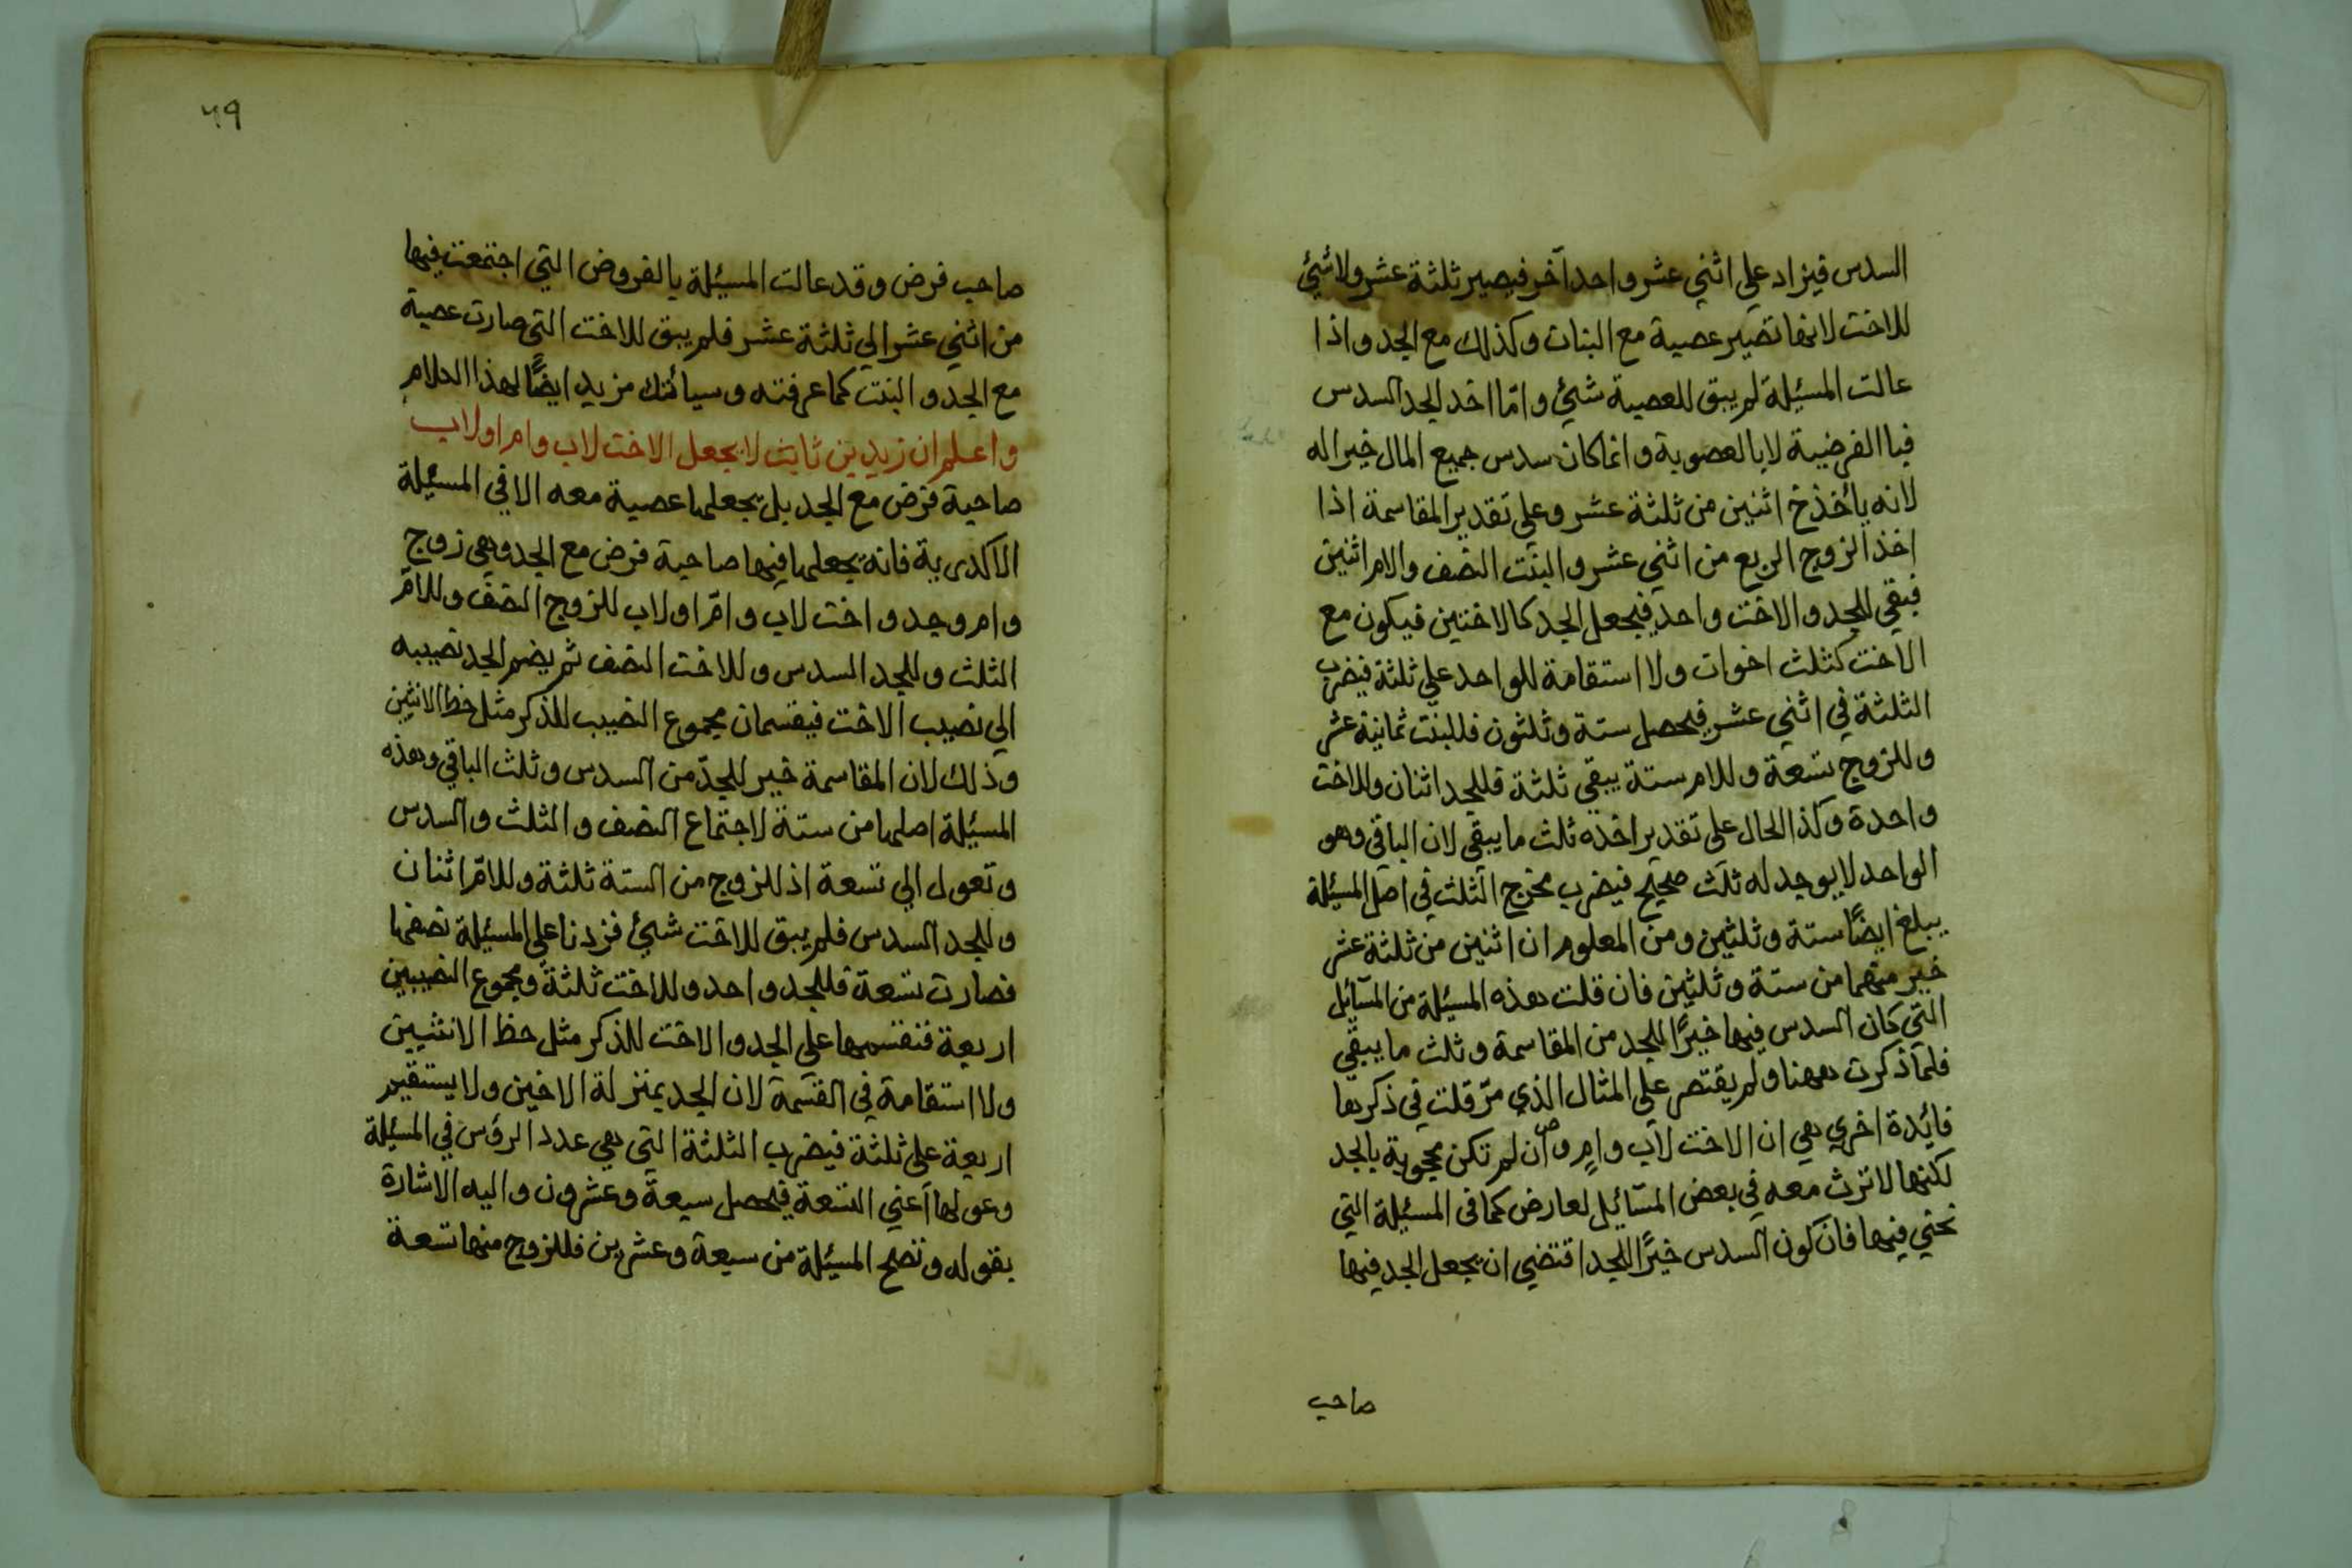 السدس فيزاد على اثني عشر واحد آخر فيصير ثلثة عشر ولا شيئ
للاخت لانها تصير عصبة مع البنات وكذلك مع الجد واذا
عالت المسئلة لم يبق للعصبة شئ وامّا اخذ الجد السدس
فبا الفرضية لا بالعصوبة وانما كان سدس جميع المال خيرا له
لانه يأخذخ اثنين من ثلثة عشر وعلي تقدير المقاسمة اذا
اخذ الزوج الربع من اثني عشر والبنت النصف والام اثنين
فبقي للجد والاخت واحد فيجعل الجد كالاختين فيكون مع
الاخت كثلث اخوات ولا استقامة للواحد علي ثلثة فيضرب
الثلثة في اثني عشر فيحصل ستة وثلثون فللبنت ثمانية عشر
وللزوج تسعة وللام ستة يبقي ثلثة فللجد اثنان وللاخت
واحدة وكذا الحال على تقدير اخذه ثلث ما يبقى لان الباقي وهو
الواحد لا يوجد له ثلث صحيح فيضرب مخرج الثلث في اصل المسئلة
يبلغ ايضًا ستة وثلثين ومن المعلوم ان اثنين من ثلثة عشر
خير منهما من ستة وثلثين فان قلت هذه المسئلة من المسآئل
التي كان السدس فيها خيرًا للجد من المقاسمة وثلث ما يبقي
فلم ذكرت ههنا ولم يقتصر على المثال الذي مرّ قلت في ذكرها
فائدة اخري هي ان الاخت لاب وامٍ وان لم تكن محجوبة بالجد
لكنها لا ترث معه في بعض المسآئل لعارض كما في المسئلة التي
نحني فيها فان كون السدس خيرًا للجد اقتضي ان يجعل الجد فيها
صاحب
٦٩
صاحب فرض وقد عالت المسئلة بالفروض التي اجتمعت فيها
من اثني عشر الي ثلثة عشر فلم يبق للاخت التي صارت عصبة
مع الجد والبنت كما عرفته وسيأتك مزيد ايضًا لهذا الكلام
واعلم ان زيد بن ثابت لا يجعل الاخت لاب وام او لاب
صاحبة فرض مع الجد بل يجعلها عصبة معه الا في المسئلة
الاكدرية فانه يجعلها فيها صاحبة فرض مع الجد وهي زوج
وام وجد واخت لاب وامّ او لاب للزوج النصف وللامّ
الثلث وللجد السدس وللاخت النصف ثم يضم الجد نصيبه
الي نصيب الاخت فيقسمان مجموع النصيب للذكر مثل حظ الانثيين
وذلك لان المقاسمة خير للجدّ من السدس وثلث الباقي وهذه
المسئلة اصلها من ستة لاجتماع النصف والثلث والسدس
وتعول الي تسعة اذ للزوج من الستة ثلثة وللامّ اثنان
وللجد السدس فلم يبق للاخت شئ فزدنا على المسئلة نصفها
فصارت تسعة فللجد واحد وللاخت ثلثة ومجموع النصيبين
اربعة فنقسمها علي الجد والاخت للذكر مثل حظ الانثيين
ولا استقامة في القسمة لان الجد بمنزلة الاخين ولا يستقيم
اربعة على ثلثة فيضرب الثلثة التي هي عدد الرؤس في المسئلة
وعولها اعني التسعة فيحصل سبعة وعشرون واليه الاشارة
بقوله وتصح المسئلة من سبعة وعشرين فللزوج منها تسعة